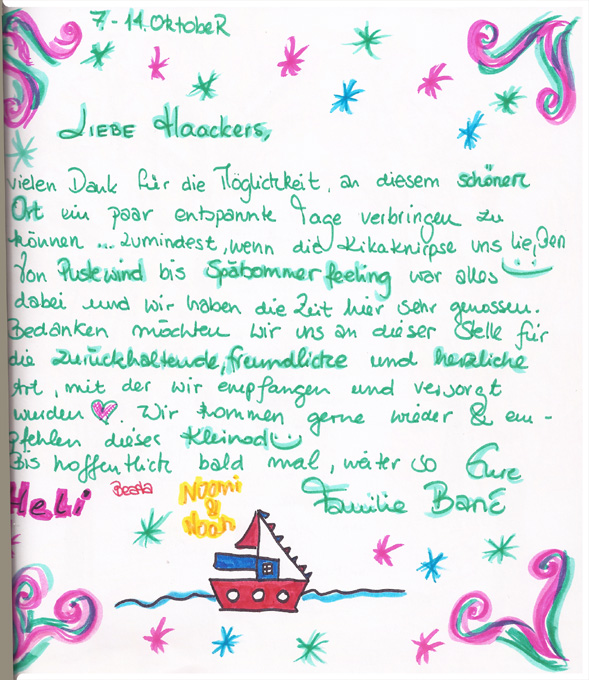 7-14. OktobeR
LIEBE Haackers,
vielen Dank für die Möglichkeit, an diesem schönen
Ort ein paar entspannte Tage verbringen zu
können ... zumindest, wenn die Kikaknirpse uns ließen
Von Pustewind bis Spätsommerfeeling war alles
dabei und wir haben die Zeit hier sehr genossen.
Bedanken möchten wir uns an dieser Stelle für
die zurückhaltende, freundliche und herzliche
Art, mit der wir empfangen und versorgt
wurden ♥. Wir kommen gerne wieder & em-
pfehlen dieses Kleinod
Bis hoffentlich bald mal, weiter so Eure
Heli Beata Noomi & Noah Familie Bané